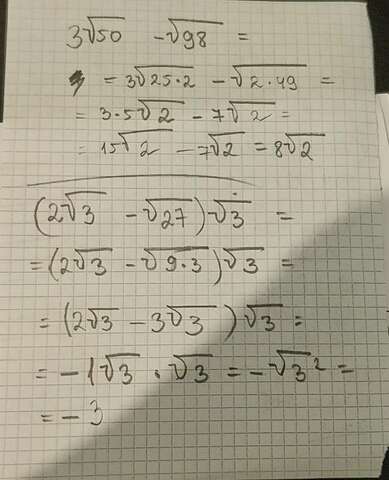 3√50 - √98 =
= 3√25·2 - √2·49 =
= 3·5√2 - 7√2 =
= 15√2 - 7√2 = 8√2
(2√3 - √27)√3 =
= (2√3 - √9·3)√3 =
= (2√3 - 3√3)√3 =
= -1√3 · √3 = -√3² =
= -3